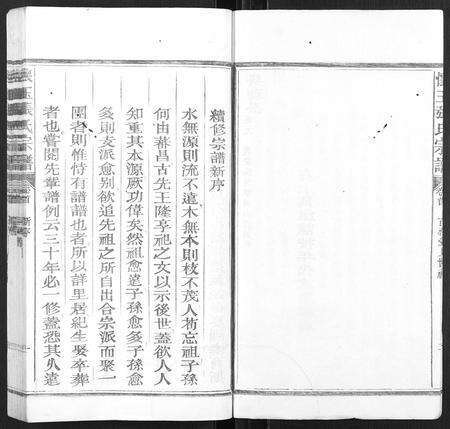 懷玉張氏宗譜 卷首
續修宗譜新序
水無源則流不遠木無本則枝不茂人苟忘祖子孫
何由蕃昌古先王隆享祀之文以示後世蓋欲人人
知重其本源厥功偉矣然祖愈遠子孫愈多子孫愈
多則支派愈別欲追先祖之所自出合宗派而聚一
團者則惟恃有譜譜也者所以詳里居紀生娶卒葬
者也嘗閱先輩譜例云三十年必一修蓋恐其久遠
懷玉張氏宗譜 卷首 新序